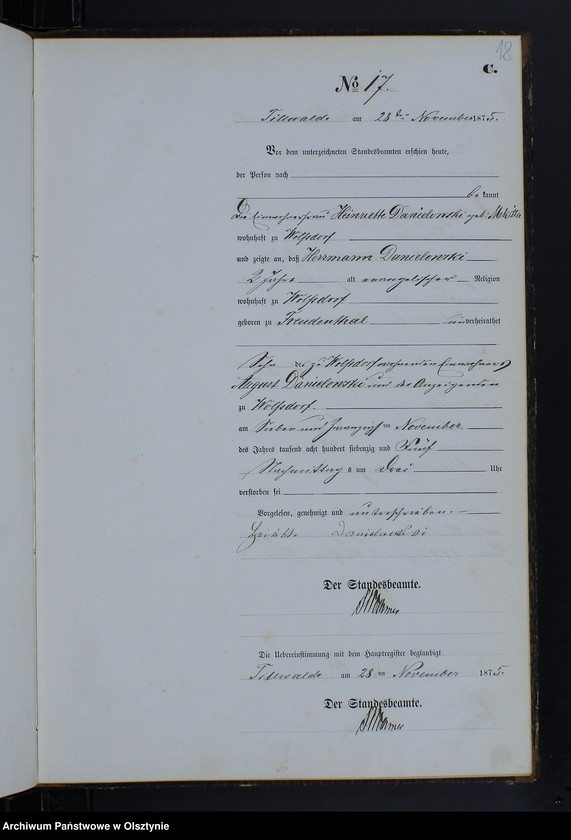 18
C.
No 17.
Tillwalde am 28ten November 1875.
Vor dem unterzeichneten Standesbeamten erschien heute,
der Person nach
bekannt
die Einwohnerfrau Heinriette Danielowski geb.
wohnhaft zu Wolfsdorf
und zeigte an, daß Herrmann Danielowski
2 Jahre alt evangelischer Religion
wohnhaft zu Wolfsdorf
geboren zu Freudenthal unverheirathet
Sohn des zu Wolfsdorf wohnenden Einwohners
August Danielowski und der Anzeigenden
zu Wolfsdorf.
am Sieben und zwanzigsten November
des Jahres tausend acht hundert siebenzig und Fünf
Nachmittags um Drei Uhr
verstorben sei
Vorgelesen, genehmigt und unterschrieben.
Danielowski
Der Standesbeamte.
Die Uebereinstimmung mit dem Hauptregister beglaubigt
Tillwalde am 28ten November 1875.
Der Standesbeamte.
Archiwum Państwowe w Olsztynie